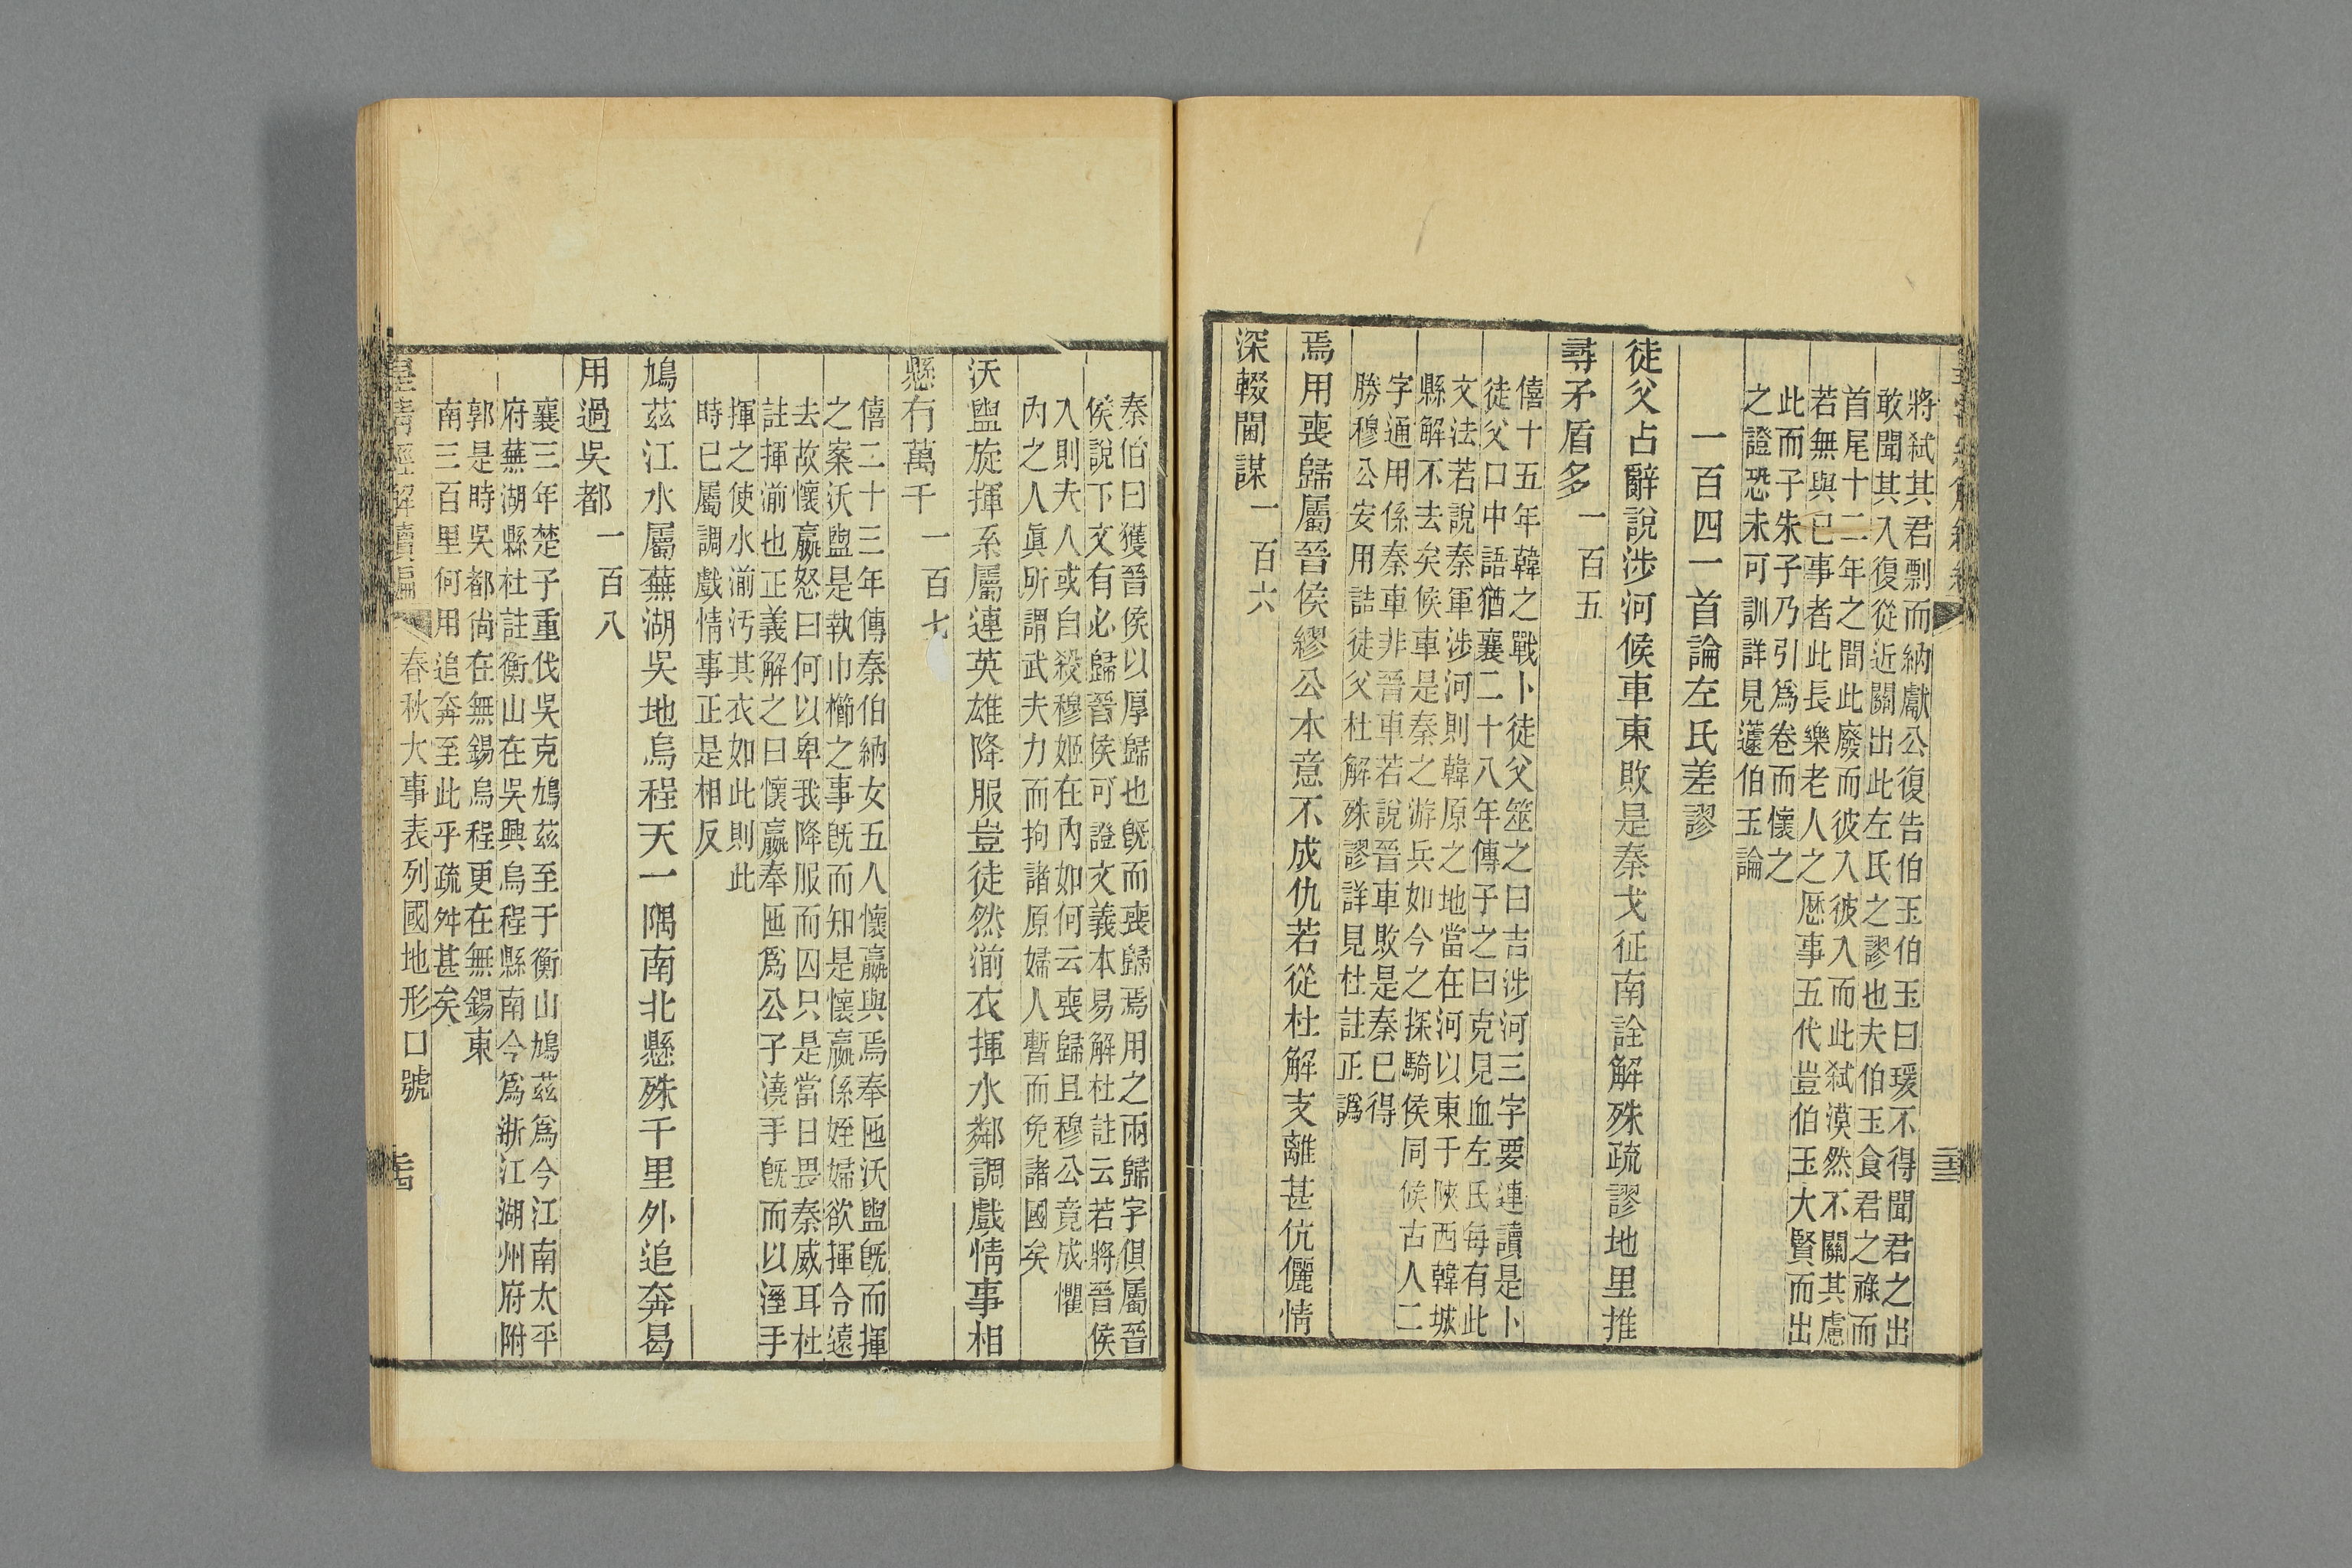 將弑其君剽而納獻公復告伯玉伯玉曰瑗不得聞君之出
敢聞其入復從近關出此左氏之謬也夫伯玉食君之祿而
首尾十二年之間此廢而彼入彼入而此弑漠然不關其慮
若無與已事者此長樂老人之厯事五代豈伯玉大賢而出
此而子朱子乃引爲卷而懷之
之證恐未可訓詳見蘧伯玉論
一百四一首論左氏差謬
徒父占辭說涉河候車東敗是秦戈征南詮解殊疏謬地里推
尋矛盾多一百五
僖十五年韓之戰卜徒父筮之曰吉涉河三字要連讀是卜
徒父口中語猶襄二十八年傳子之曰克見血左氏每有此
文法若說秦軍涉河則韓原之地當在河以東于陝西韓城
縣解不去矣候車是秦之游兵如今之探騎侯同候古人二
字通用係秦車非晉車若說晉車敗是秦已得
勝穆公安用詰徒父杜解殊謬詳見杜註正譌
焉用喪歸屬晉侯繆公本意不成仇若從杜解支離甚伉儷情
深輟閫謀一百六
秦伯曰獲晉侯以厚歸也旣而喪歸焉用之兩歸字俱屬晉
侯說下文有必歸晉侯可證文義本易解杜註云若將晉侯
入則夫人或自殺穆姬在內如何云喪歸且穆公竟成懼
內之人眞所謂武夫力而拘諸原婦人暫而免諸國矣
沃盥旋揮系屬連英雄降服豈徒然湔衣揮水鄰調戲情事相
懸有萬千一百七
僖二十三年傳秦伯納女五人懷嬴與焉奉匜沃盥旣而揮
之案沃盥是執巾櫛之事旣而知是懷嬴係姪婦欲揮令遠
去故懷嬴怒曰何以卑我降服而囚只是當日畏秦威耳杜
註揮湔也正義解之曰懷嬴奉匜爲公子澆手旣而以溼手
揮之使水湔汚其衣如此則此
時已屬調戲情事正是相反
鳩茲江水屬蕪湖吳地烏程天一隅南北懸殊千里外追奔曷
用過吳都一百八
襄三年楚子重伐吳克鳩茲至于衡山鳩茲爲今江南太平
府蕪湖縣杜註衡山在吳興烏程縣南今爲浙江湖州府附
郭是時吳都尙在無錫烏程更在無錫東
南三百里何用追奔至此乎疏舛甚矣
皇淸經解續編
春秋大事表列國地形口號